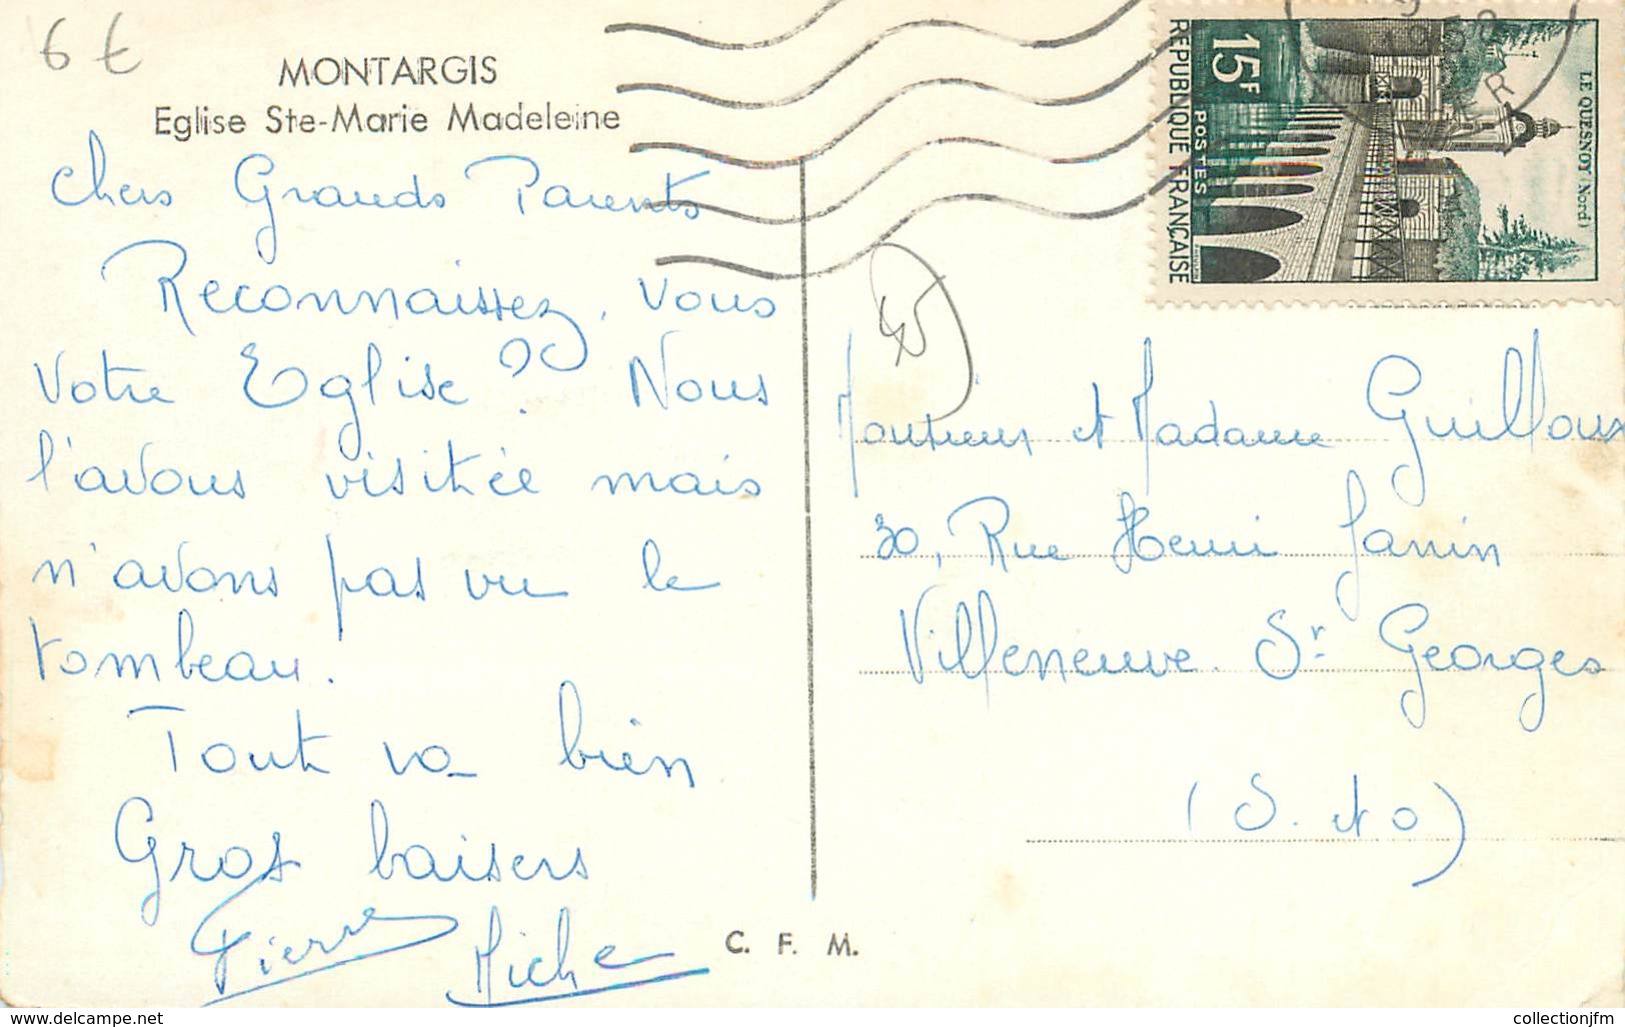 6 €
MONTARGIS
Eglise Ste-Marie Madeleine
Chers Grands Parents
Reconnaissez. Vous
Votre Eglise ? Nous
l'avons visitée mais
n'avons pas vu le
tombeau.
Tout va bien
Gros baisers
Pierre Miche
C. F. M.
15F
POSTES
REPUBLIQUE FRANÇAISE
LE QUESNOY (Nord)
Monsieur et Madame Guilloux
30, Rue Henri Janin
Villeneuve St Georges
(S. et O)
www.delcampe.net
collectionjfm